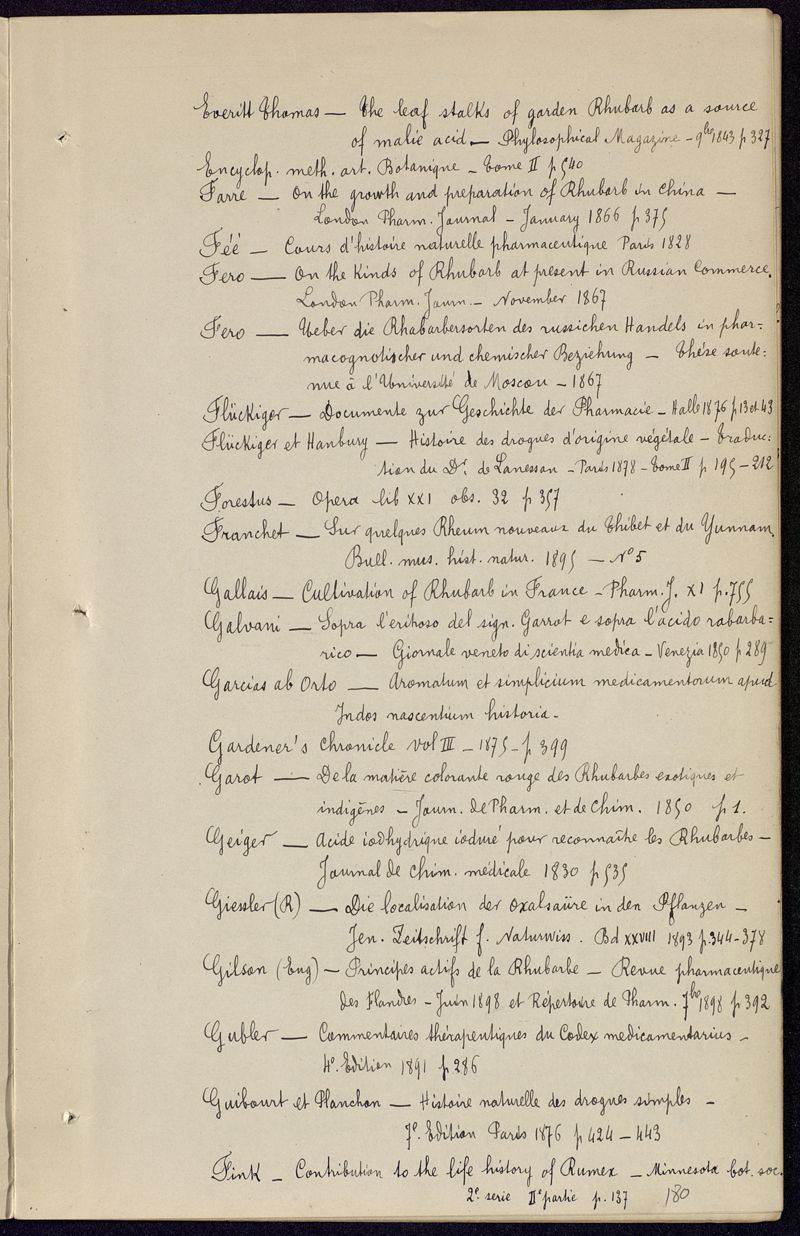 Everitt Thomas — The leaf stalks of garden Rhubarb as a source
of malic acid — Phylosophical Magazine - 9bre 1843 p 327
Encyclop. meth. art. Botanique - Tome II p 540
Farre — On the growth and preparation of Rhubarb in China —
London Pharm. Journal - January 1866 p 375
Féé — Cours d'histoire naturelle pharmaceutique Paris 1828
Fero — On the Kinds of Rhubarb at present in Russian Commerce.
London Pharm. Journ. - November 1867
Fero — Ueber die Rhabarbersorten des russichen Handels in phar=
macognotischer und chemischer Beziehung — Thése soute=
nue à l'Université de Moscou - 1867
Flückiger — Documente zur Geschichte der Pharmacie - Halle 1876 p 13 et 43
Flückiger et Hanbury — Histoire des drogues d'origine végétale - Traduc=
tion du Dr. de Lanessan - Paris 1878 - Tome II p 195 - 212
Forestus — Opera lib XXI obs. 32 p 357
Franchet — Sur quelques Rheum nouveaux du Thibet et du Yunnam.
Bull. mus. hist. natur. 1895 — No 5
Gallais — Cultivation of Rhubarb in France - Pharm. J. XI p. 755
Galvani — Sopra l'eritroso del sign. Garrot e sopra l'acido rabarba=
rico — Giornale veneto di scientia medica - Venezia 1850 p 289
Garcias ab Orto — Aromatum et simplicium medicamentorum apud
Indos nascentium historia -
Gardener's Chronicle vol III - 1875 - p 399
Garot — De la matière colorante rouge des Rhubarbes exotiques et
indigènes - Journ. de Pharm. et de Chim. 1850 p 1.
Geiger — Acide iodhydrique ioduré pour reconnaître les Rhubarbes —
Journal de Chim. médicale 1830 p 535
Giessler (R) — Die localisation der oxalsaüre in den Pflanzen -
Jen. Zeitschrift f. Naturwiss. Bd XXVIII 1893 p. 344-378
Gilson (Eug) — Principes actifs de la Rhubarbe — Revue pharmaceutique
des Flandres - Juin 1898 et Répertoire de Pharm. 7bre 1898 p 392
Gubler — Commentaires thérapeutiques du Codex medicamentarius -
4e. Edition 1891 p 286
Guibourt et Planchon — Histoire naturelle des drogues simples -
7e. Edition Paris 1876 p 424 - 443
Fink - Contribution to the life history of Rumex - Minnesota bot. soc.
2e. serie IIe partie p. 137 180